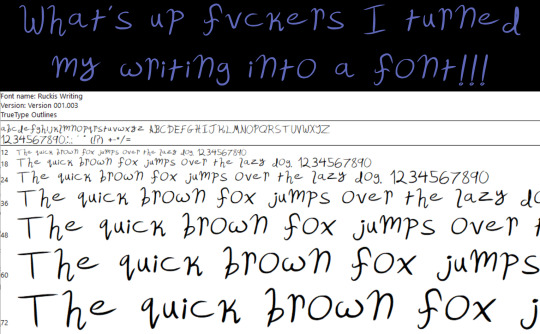 What's up fvckers I turned
my writing into a font!!!
Font name: Ruckis Writing
Version: Version 001.003
TrueType Outlines
abcdefghijklmnopqrstuvwxyz ABCDEFGHIJKLMNOPQRSTUVWXYZ
1234567890.:,; ' " (!?) +-*/=
12 The quick brown fox jumps over the lazy dog. 1234567890
18 The quick brown fox jumps over the lazy dog. 1234567890
24 The quick brown fox jumps over the lazy dog. 1234567890
36 The quick brown fox jumps over the lazy do
48 The quick brown fox jumps over t
60 The quick brown fox jumps
72 The quick brown fox j